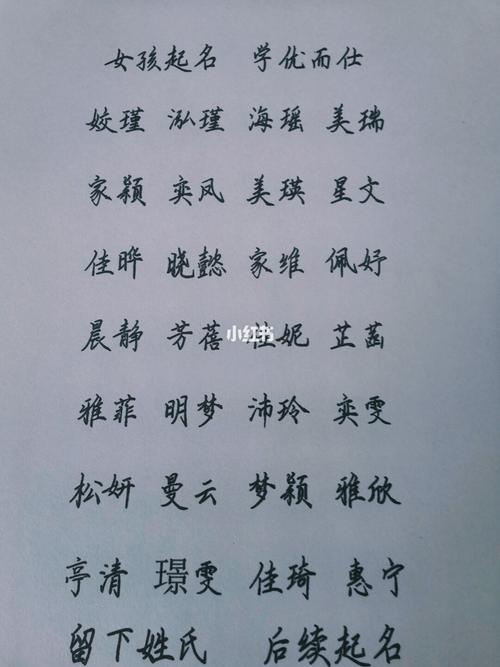 女孩起名 学优而仕
姣瑾 泓瑾 海瑶 美瑞
家颖 奕凤 美瑛 星文
佳晔 晓懿 家维 佩妤
晨静 芳蓓 桂妮 芷菡
小红书
雅菲 明梦 沛玲 奕雯
松妍 曼云 梦颖 雅欣
亭清 璟雯 佳琦 惠宁
留下姓氏 后续起名